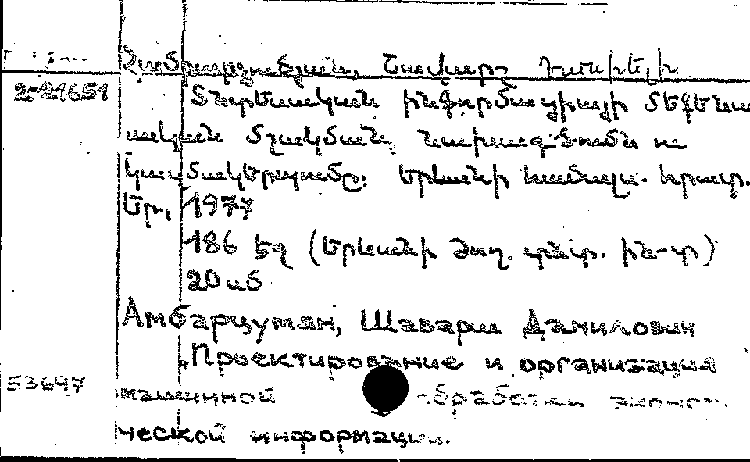 Համբարձումյան, Շավարշ Դանիելի
2-21651 Տնտեսական ինֆորմացիայի մեքենա
յական մշակման նախագծումն ու
կազմակերպումը: Երևանի համալս. հրատ.
Եր., 1977
186 էջ (Երևանի ժող. տնտ. ին-տ)
20 սմ
Амбарцумян, Шаварш Данилович
Проектирование и организация
53647 машинной обработки экономи
ческой информации.